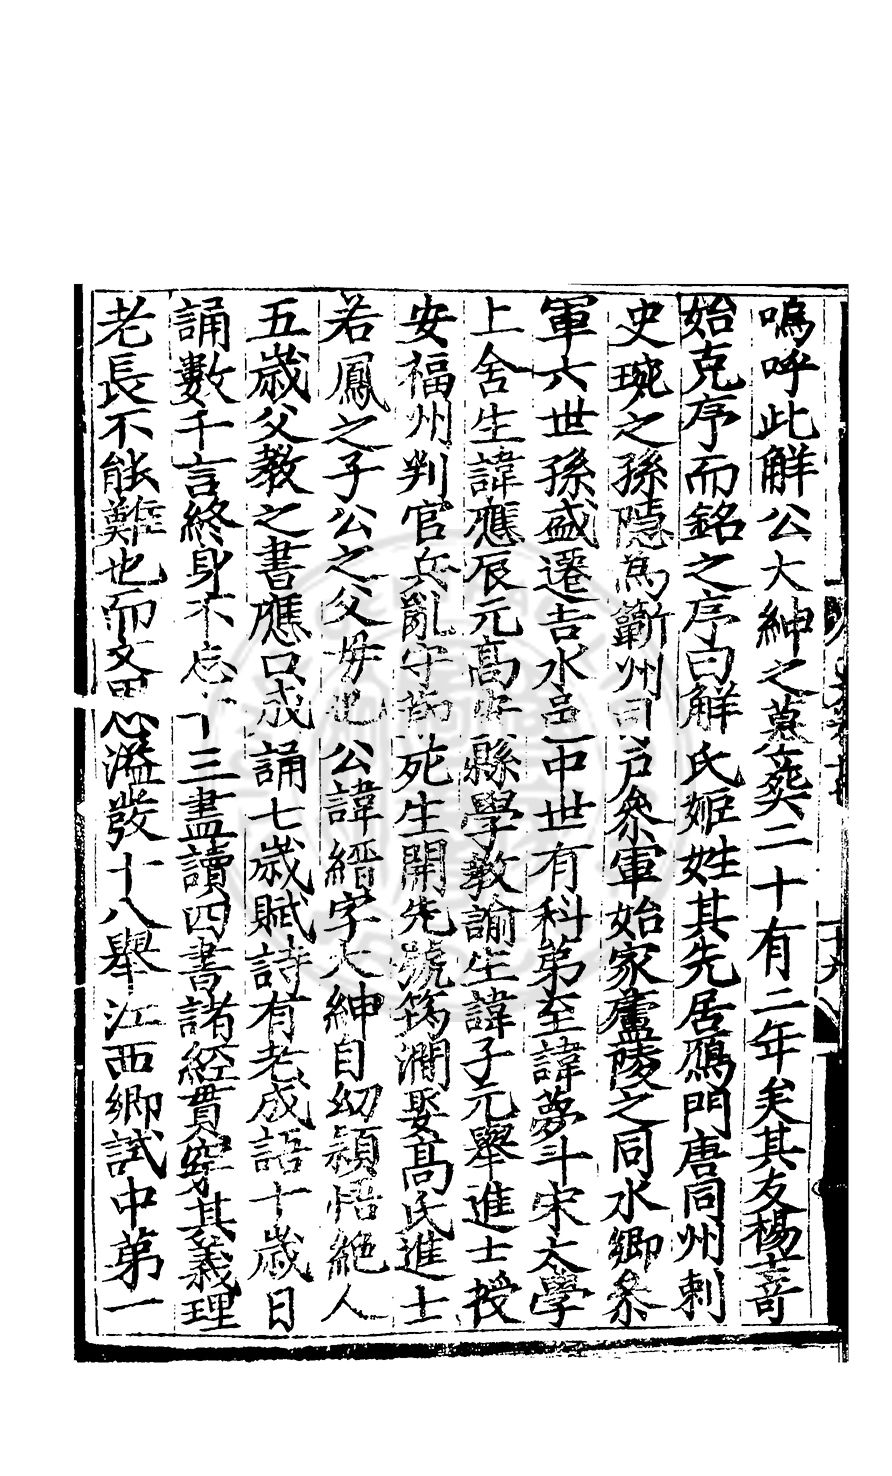 嗚呼此解公大紳之墓葬二十有二年矣其友楊士奇
始克序而銘之序曰解氏姬姓其先居鴈門唐同州刺
史琬之孫隱為蘄州司戶叅軍始家廬陵之同水鄉叅
軍六世孫盛遷吉水邑中世有科第至諱夢斗宋太學
上舍生諱應辰元高安縣學教諭生諱子元舉進士授
安福州判官兵亂守節死生開先號筠澗娶高氏進士
若鳳之子公之父母也公諱縉字大紳自幼穎悟絕人
五歲父教之書應口成誦七歲賦詩有老成語十歲日
誦數千言終身不忘十三盡讀四書諸經貫穿其義理
老長不能難也而文思溢發十八舉江西鄉試中第一